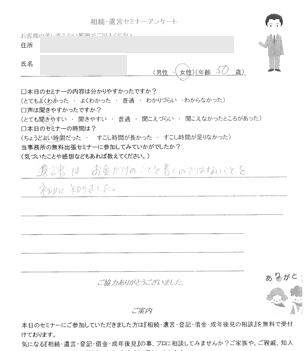 相続・遺言セミナーアンケート
お客様の
住所
氏名
(男性 ・ 女性)(年齢 50 歳)
□本日のセミナーの内容は分かりやすかったですか?
(とてもよくわかった ・ よくわかった ・ 普通 ・ わかりづらい ・ わからなかった)
□声は聞きやすかったですか?
(とても聞きやすい ・ 聞きやすい ・ 普通 ・ 聞こえづらい ・ 聞こえなかったところがあった)
□本日のセミナーの時間は?
(ちょうどよい時間だった ・ すこし時間が長かった ・ すこし時間が足りなかった)
当事務所の無料出張セミナーに参加してみていかがでしたか?
(気づいたことや感想などもあれば教えてください。)
遺言書は お金だけのことを書くのではないことを
初めて知りました。
ご協力ありがとうございました。
ありがと
ご案内
本日のセミナーにご参加していただきました方は『相続・遺言・登記・借金・成年後見の相談』を無料で受付
けております。
気になる『相続・遺言・登記・借金・成年後見』の事、プロに相談してみませんか?ご家族や、ご親戚、知人